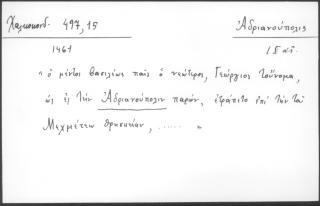 Χαλκοκονδ. 497,15
Ἀδριανούπολις
1461
" ὁ μέντοι βασιλέως παῖς ὁ νεώτερος, Γεώργιος τοὔνομα,
ὡς ἐς τὴν Ἀδριανούπολιν παρῆν, ἐτράπετο ἐπὶ τὴν τοῦ
Μεχμέτεω θρησκείαν, ...... "